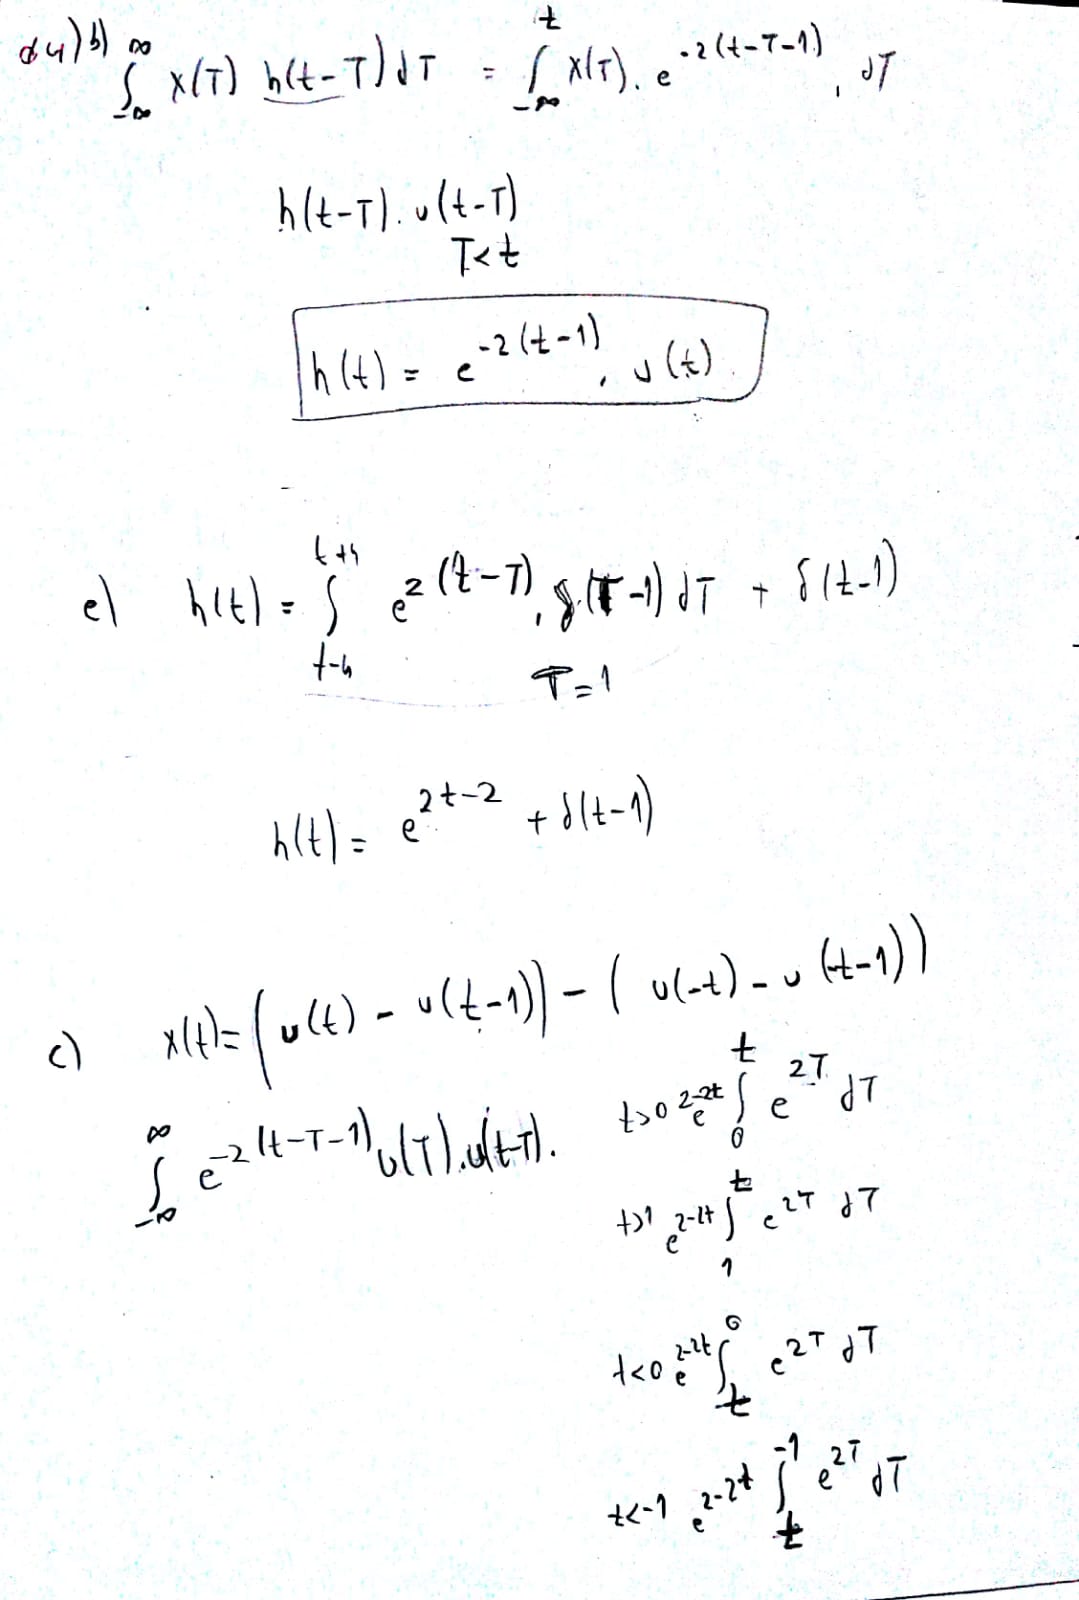 α4) b) ∫_{-∞}^{∞} x(T) h(t-T) dT = ∫_{-∞}^{t} x(T). e^{-2(t-T-1)}. dT
h(t-T). u(t-T)
T<t
h(t) = e^{-2(t-1)}. u(t).
e) h(t) = ∫_{t-4}^{t+4} e^{2(t-T)}. δ(T-1) dT + δ(t-1)
T=1
h(t) = e^{2t-2} + δ(t-1)
c) x(t) = (u(t) - u(t-1)) - (u(-t) - u(-t-1))
∫_{-∞}^{∞} e^{-2(t-T-1)} u(T).u(t-T).
t>0 e^{2-2t} ∫_{0}^{t} e^{2T} dT
t>1 e^{2-2t} ∫_{1}^{t} e^{2T} dT
t<0 e^{2-2t} ∫_{t}^{0} e^{2T} dT
t<-1 e^{2-2t} ∫_{t}^{-1} e^{2T} dT